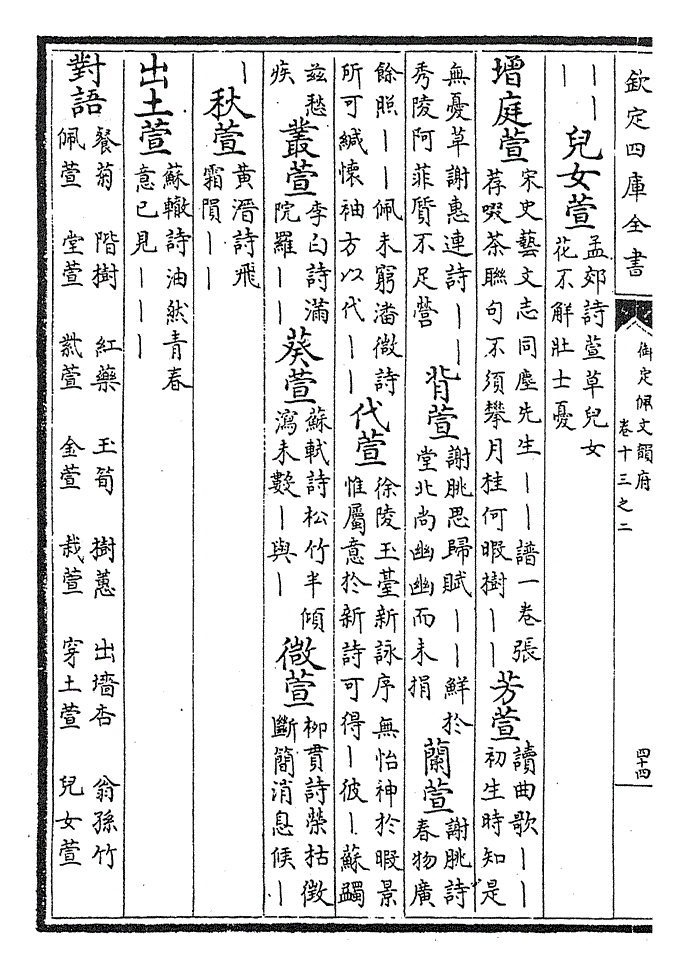 欽定四庫全書
御定佩文韻府
卷十三之二
四十四
丨丨
丨丨
兒女萱
孟郊詩萱草兒女
花不解壯士憂
增庭萱
宋史藝文志同塵先生丨丨譜一卷張
荐啜茶聯句不須攀月桂何暇樹丨丨
芳萱
讀曲歌丨丨
初生時知是
無憂草謝惠連詩丨丨
秀陵阿菲質不足營
背萱
謝朓思歸賦丨丨鮮於
堂北尚幽幽而未捐
蘭萱
謝朓詩
春物廣
餘照丨丨佩未窮潘徽詩
所可緘懷袖方以代丨丨
代萱
徐陵玉臺新詠序無怡神於暇景
惟屬意於新詩可得丨彼丨蘇蠲
兹愁
疾
叢萱
李白詩滿
院羅丨丨
葵萱
蘇軾詩松竹半傾
瀉未數丨與丨
微萱
柳貫詩榮枯徵
斷簡消息候丨
丨
秋萱
黃溍詩飛
霜隕丨丨
出土萱
蘇轍詩油然青春
意已見丨丨丨
對語
餐菊 階樹 紅藥 玉筍 樹蕙 出墻杏 翁孫竹
佩萱 堂萱 紫萱 金萱 栽萱 穿土萱 兒女萱